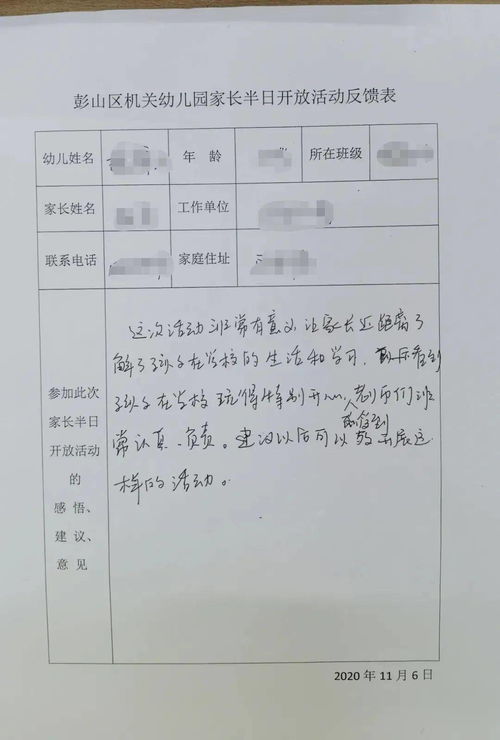 彭山区机关幼儿园家长半日开放活动反馈表
幼儿姓名 年 龄 所在班级
家长姓名 工作单位
联系电话 家庭住址
参加此次
家长半日
开放活动
的
感 悟、
建 议、
意 见
这次活动非常有意义,让家长近距离了
解了孩子在学校的生活和学习, 看到
了孩子在学校玩得特别开心,老师们非
常认真、负责。建议以后可以 多开展这
样的活动。
2020 年 11 月 6 日